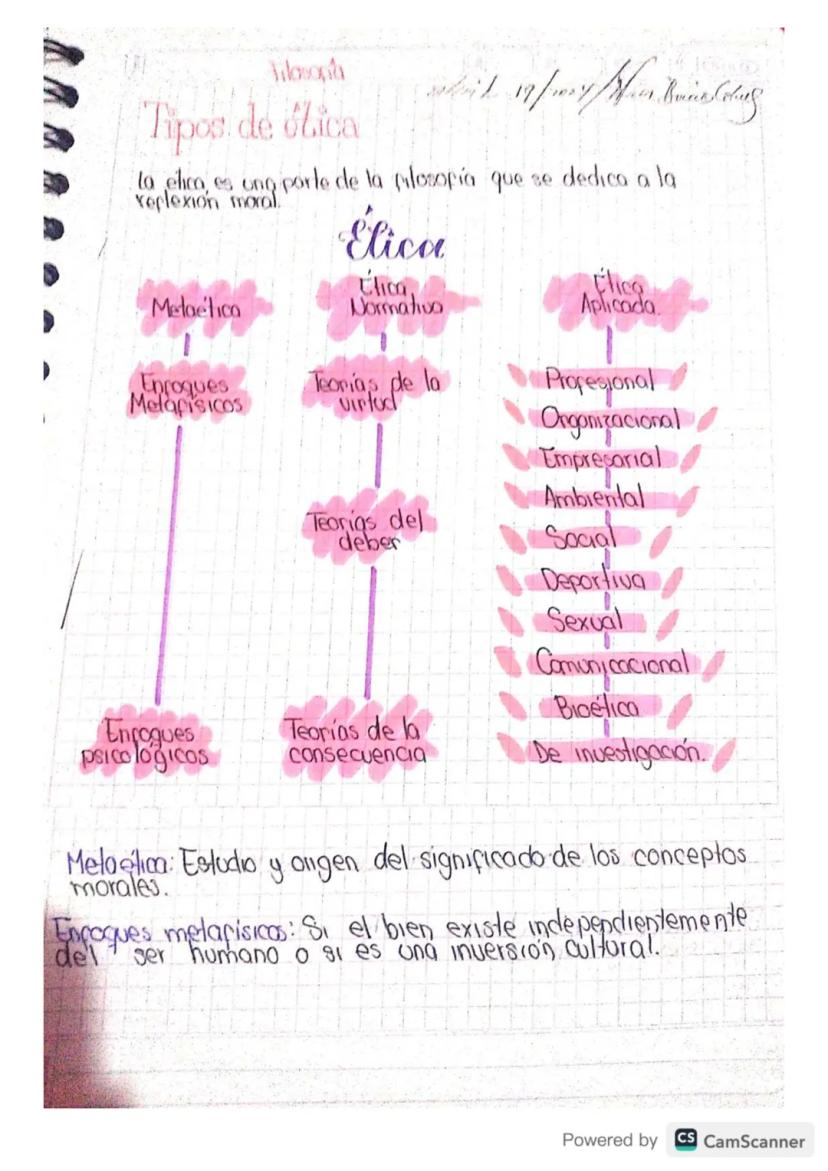 Filosofía
19/
Tipos de ética
la ética, es una parte de la filosofía que se dedica a la
reflexión moral.
Ética
Metaética
Enfoques
Metafísicos
Enfoques
psicológicos
Ética
Normativa
Teorías de la
virtud
Teorías del
deber
Teorías de la
consecuencia
Ética
Aplicada.
Profesional
Organizacional
Empresarial
Ambiental
Social
Deportiva
Sexual
Comunicacional
Bioética
De investigación.
Metaética: Estudio y origen del significado de los conceptos
morales.
Enfoques metafísicos: Si el bien existe independientemente
del ser humano o si es una inversión cultural.
Powered by CS CamScanner